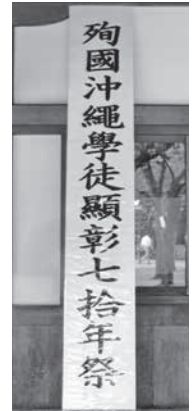 殉國沖繩學徒顯彰七拾年祭